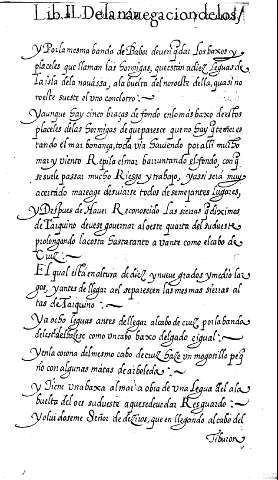 Lib. II. De la navegacion de los/
y Por la mesma banda de Babor deven q̄dar Los baxos y
placeles que llaman las hormigas, que estan a diez Leguas de
La isla de la navassa, ala buelta del noroeste della, quasi no
roeste sueste el uno con elotro:~
y aunque hay cinco braças de fondo en lo mas baxo destos
placeles delas hormigas de que parece que no hay q̄ temer es
tando el mar bonança, toda via haviendo por alli mucho
mar y viento Repila el mar barruntando el fondo, con q̄
se suele passar mucho Riesgo y trabajo, y assi será muy
acertado mareage desviarse todos de semejantes lugares,
y Despues de Haver Reconoscido Las sierras q̄ diximos
de Tarquino devese governar al oeste quarta del sudueste
prolongando la costa hasta tanto avante como el cabo de
Cruz:~
El qual está en altura de diez y nueve grados y medio lar
gos, y antes de llegar a el se parescen las mesmas sierras al
tas de Tarquino:~
Ya ocho leguas antes de llegar al cabo de cruz, por la banda
del este hazese como un cabo baxo delgado e igual:~
y en la corona del mesmo cabo de cruz haze un mogotillo peq̄
ño con algunas matas de arboleda:~
y Tiene una baxa al mar a obra de una Legua del ala
buelta del oes sudueste a que se deve dar Resguardo:~
y olvidoseme Señor de deziros, que en llegando al cabo del
Tiburon